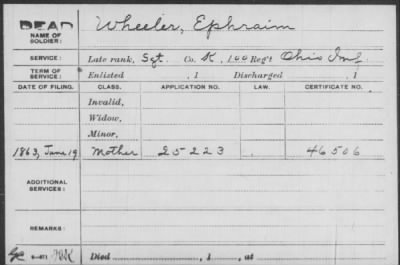 DEAD Wheeler, Ephraim
NAME OF SOLDIER:
SERVICE: Late rank, Sgt. Co. K, 100 Reg't Ohio Inf.
TERM OF SERVICE: Enlisted , 1 Discharged , 1
DATE OF FILING. CLASS. APPLICATION NO. LAW. CERTIFICATE NO.
Invalid,
Widow,
Minor,
1863, June 19 Mother 25223 46506
ADDITIONAL SERVICES:
REMARKS:
Died , 1 , at